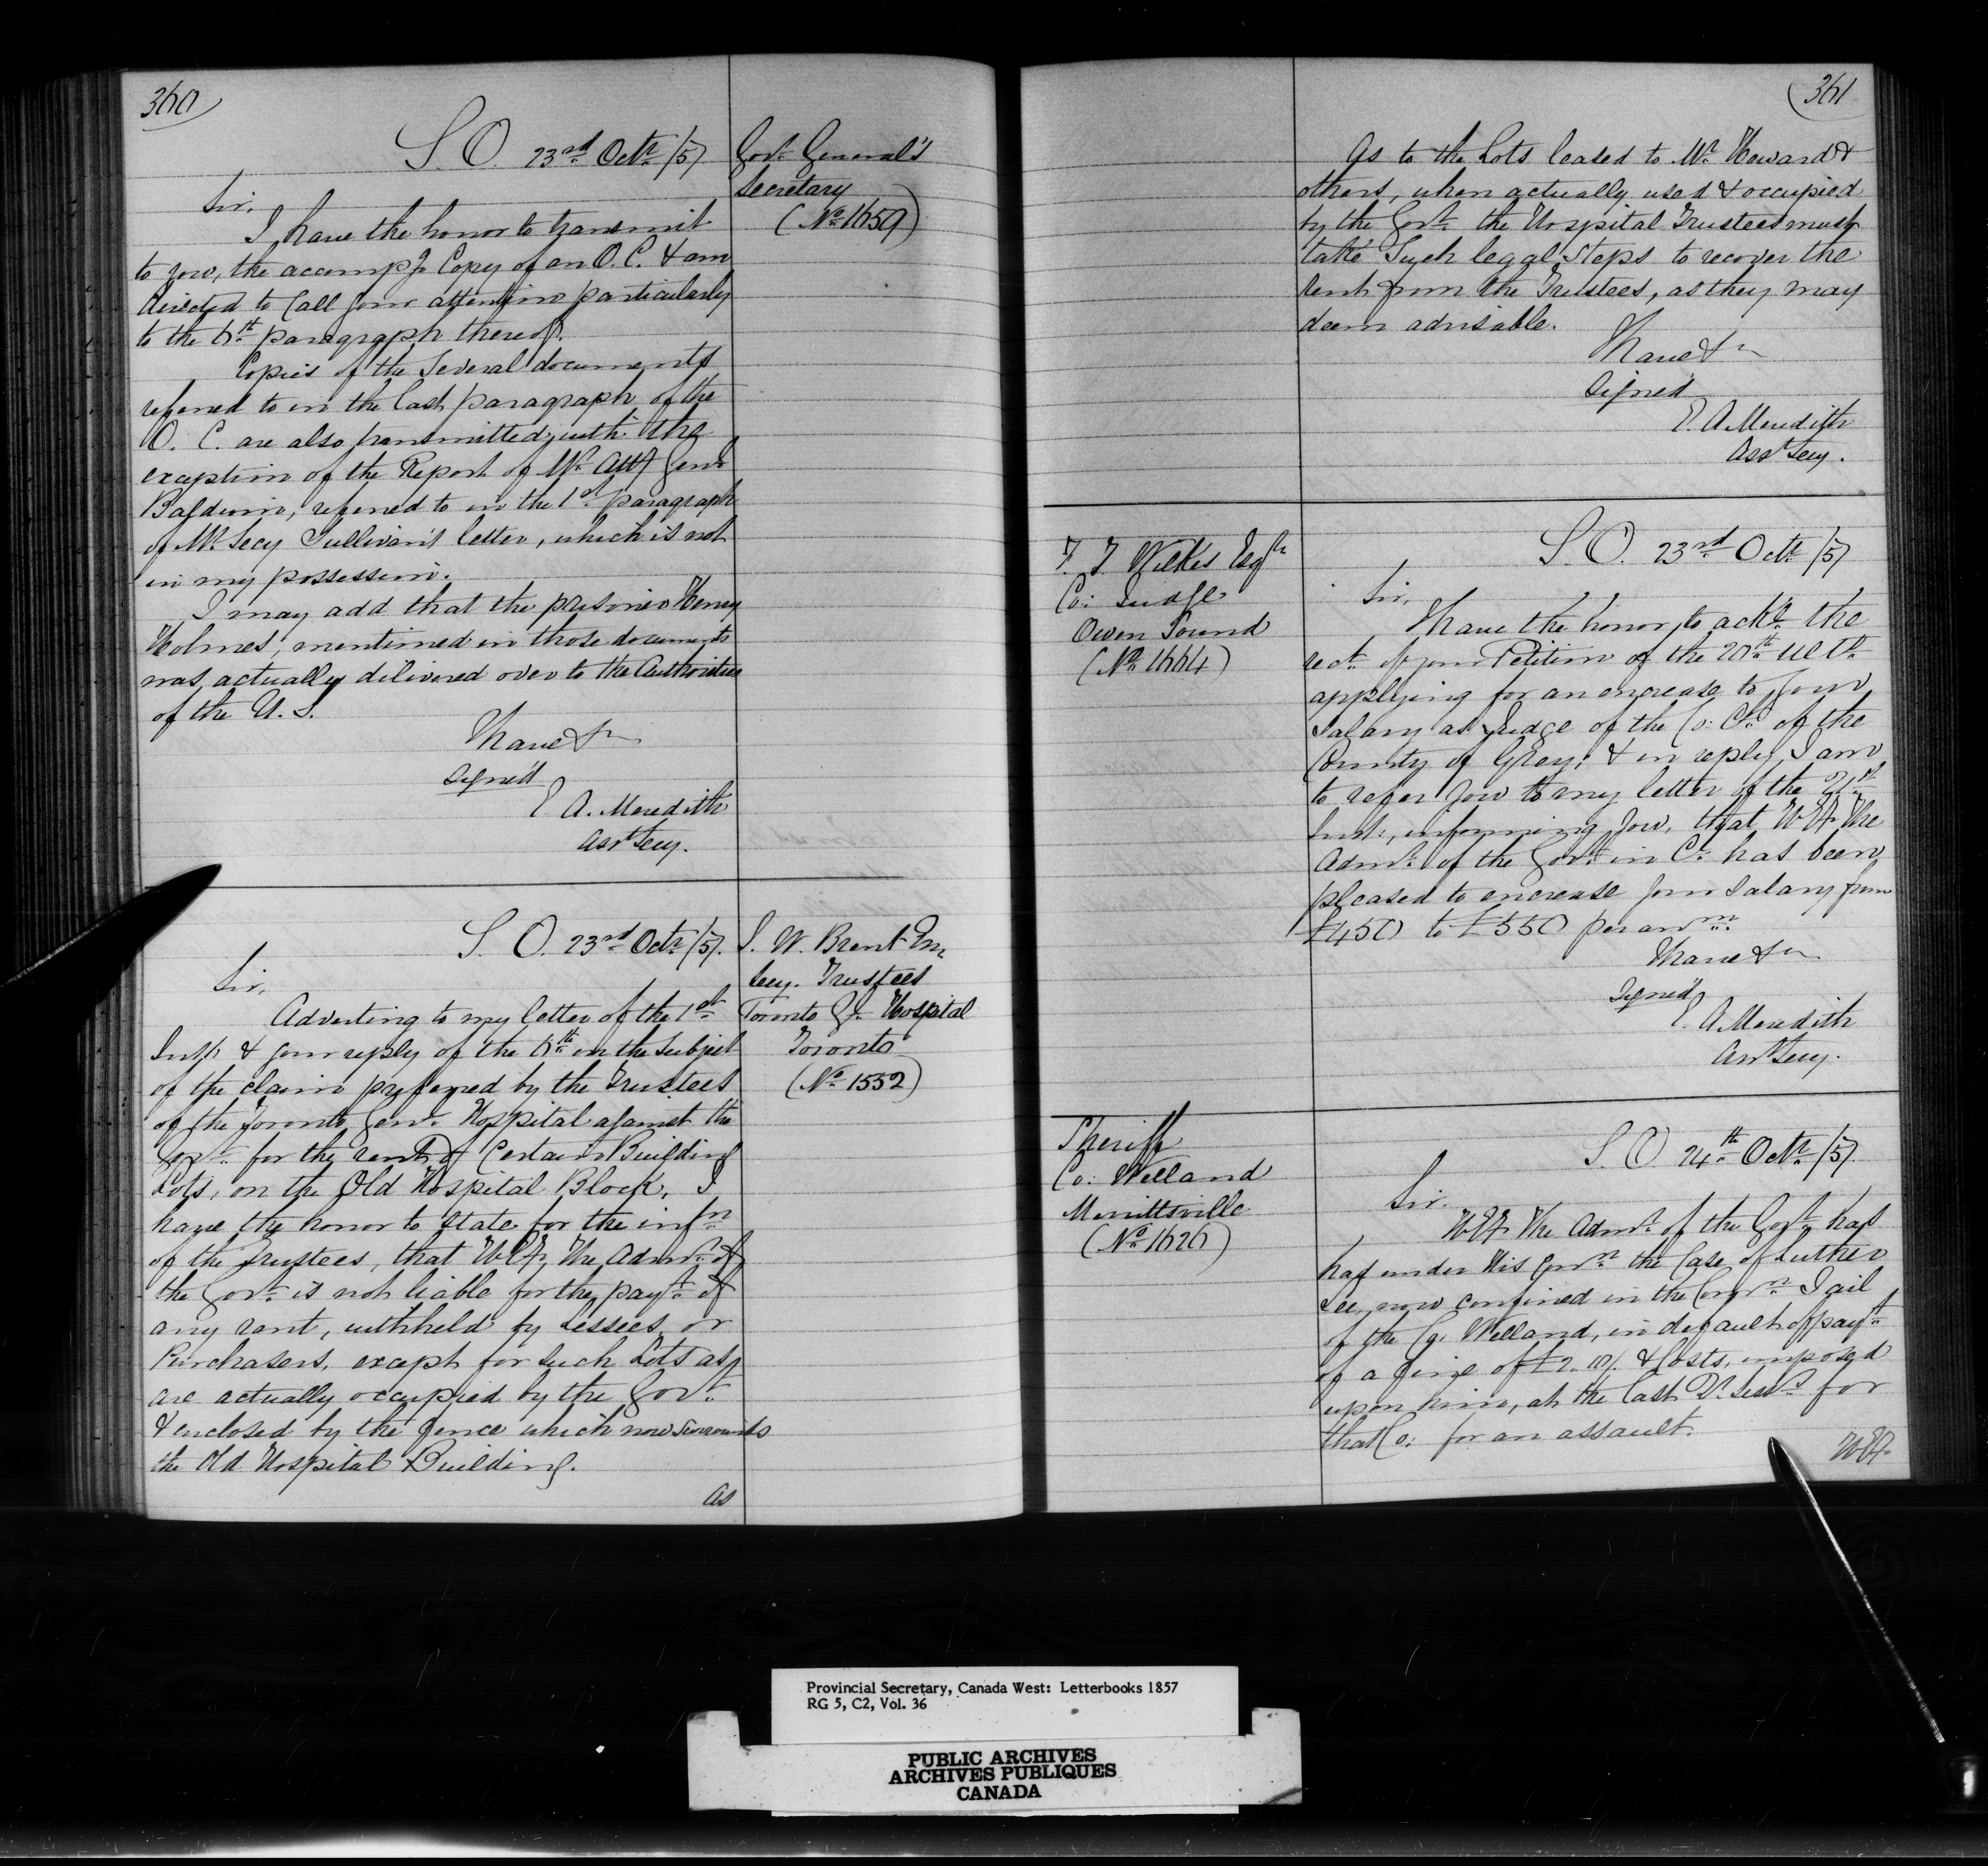 360
S. O. 23rd Octr /57
Govr General's
Secretary
(No 1659)
Sir,
I have the honor to transmit
to you, the accompg Copy of an O. C. & am
directed to Call your attention particularly
to the 6th paragraph thereof.
Copies of the Several documents
referred to in the last paragraph of the
O. C. are also transmitted, with the
exception of the Report of Mr Atty Genl
Baldwin, referred to in the 1st paragraph
of Mr Secy Sullivan's letter, which is not
in my possession.
I may add that the prisoner Henry
Holmes, mentioned in those documents
was actually delivered over to the Authorities
of the U. S.
I have &c
Signed
E A. Meredith
Asst Secy.
S. O. 23rd Octr /57.
J. W. Brent Esq
Secy. Trustees
Toronto Gl Hospital
Toronto
(No 1552)
Sir,
Adverting to my letter of the 1st
Inst & your reply of the 6th on the Subject
of the claim preferred by the Trustees
of the Toronto Genl Hospital against the
Govt for the rent of Certain Building
Lots, on the Old Hospital Block, I
have the honor to state for the infn
of the Trustees, that H. Ey. The Admr of
the Govt is not liable for the payt of
any rent, withheld by Lessees or
Purchasers, except for such Lots as
are actually occupied by the Govt
& enclosed by the fence which now surrounds
the Old Hospital Building.
As
361
As to the Lots leased to Mr Heward &
others, when actually used & occupied
by the Govt the Hospital Trustees must
take Such legal Steps to recover the
rent from the Trustees, as they may
deem advisable.
I have &c
Signed
E. A Meredith
Asst Secy.
S. O. 23rd Octr /57
Wilkes Esqr
Co: Judge
Owen Sound
(No 1664)
Sir,
I have the honor to ackn the
rect of your Petition of the 20th Ulto
applying for an encrease to your
Salary as Judge of the Co: Ct of the
County of Grey; & in reply I am
to refer you to my letter of the 21st
Inst:, informing you, that H Ey The
Admr of the Govt in C. has been
pleased to encrease your Salary from
£450 to £550 per anm
I have &c
Signed
E. A Meredith
Asst Secy.
S. O. 24th Octr /57
Sheriff
Co: Welland
Merrittsville
(No 1626)
Sir.
H Ey The Admr of the Govt has
had under His Conn the Case of Luther
Lee, now confined in the Comn Jail
of the Co: Welland, in default of payt
of a fine of £2. 10/. & Costs, imposed
upon him, at the last Qr Sesss for
that Co: for an assault.
H Ey
Provincial Secretary, Canada West: Letterbooks 1857
RG 5, C2, Vol. 36
PUBLIC ARCHIVES
ARCHIVES PUBLIQUES
CANADA